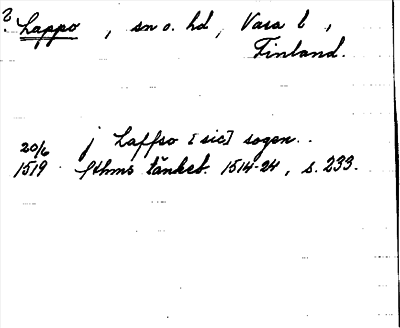 ? Lappo, sn o. hd, Vasa l,
Finland.
20/6 j Laffso [sic] sogen..
1519 Sthms tänkeb. 1514-24, s. 233.